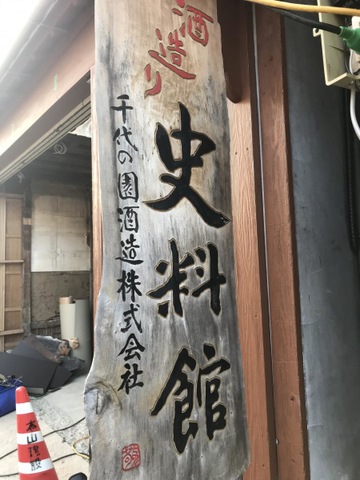 酒造り
史料館
千代の園酒造株式会社
本山建設